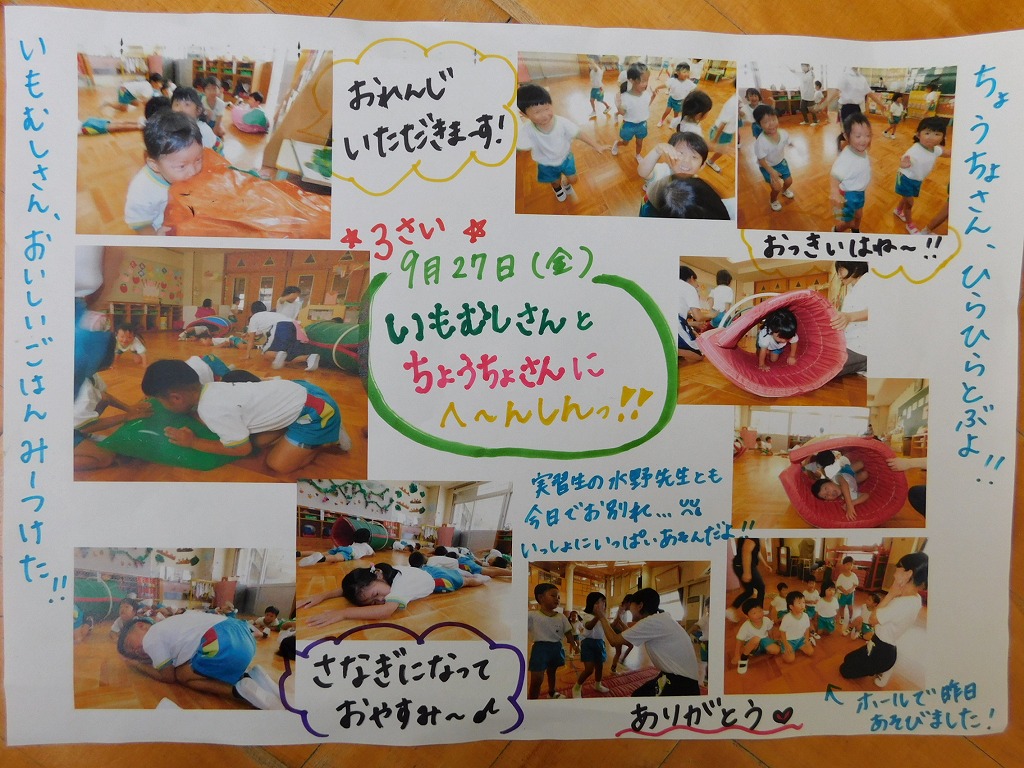 いもむしさん、おいしいごはんみーつけた!!
おれんじ
いただきまーす!
ちょうちょさん、ひらひらとぶよ!!
おっきいはね〜!!
★3さい★
9月27日(金)
いもむしさんと
ちょうちょさんに
へ〜んしんっ!!
実習生の水野先生とも
今日でお別れ...
いっしょにいっぱいあそんだよ!!
さなぎになって
おやすみ〜♪
ありがとう♡
↖ホールで昨日
あそびました!